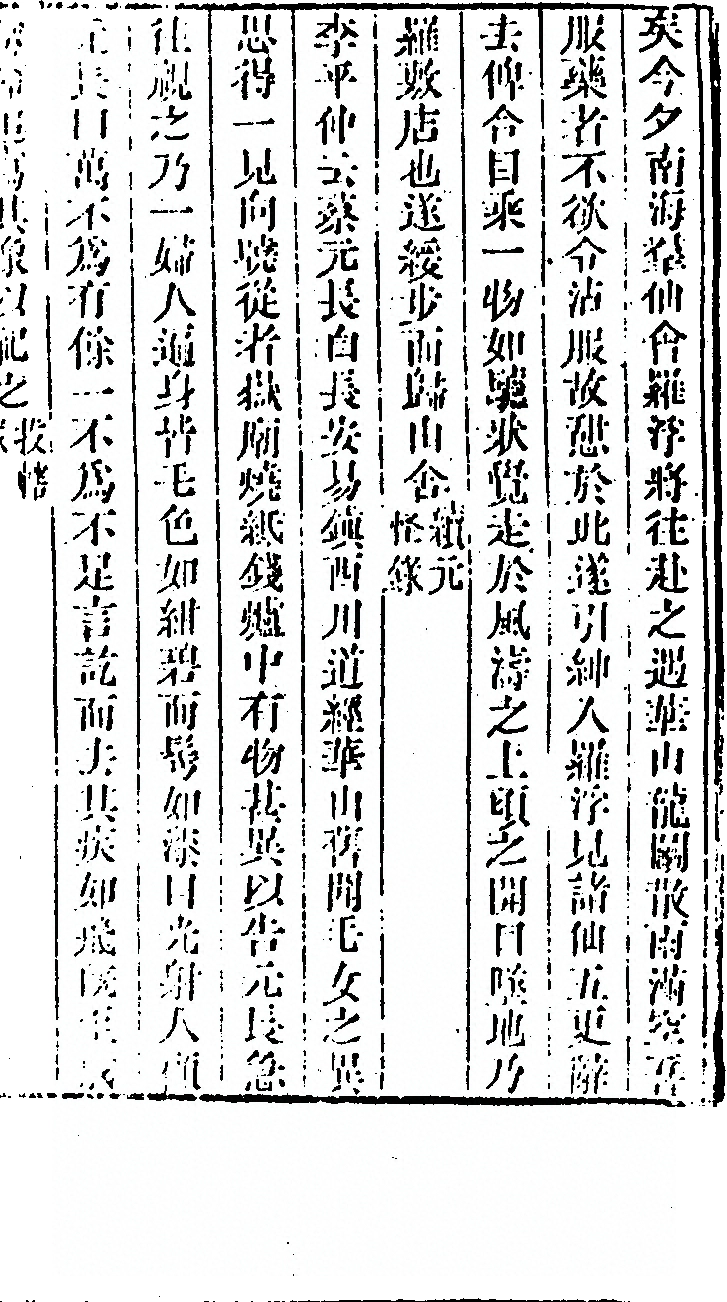 矣今夕南海羣仙會羅浮將往赴之遇華山龍鬬散雨滿空吾
服藥者不欲令沾服故憇於此遂引紳入羅浮見諸仙五更辭
去俾合目乘一物如驢狀覺走於風濤之上頃之開目墜地乃
羅敷店也遂緩步而歸山舍續元怪錄
李平仲云蔡元長自長安易鎮西川道經華山舊聞毛女之異
思得一見向曉從者嶽廟燒紙錢爐中有物甚異以告元長急
往視之乃一婦人遍身皆毛色如紺碧而髮如漆目光射人顧
元長曰萬不爲有餘一不爲不足言訖而去其疾如飛既至成
寫其像以記之投轄